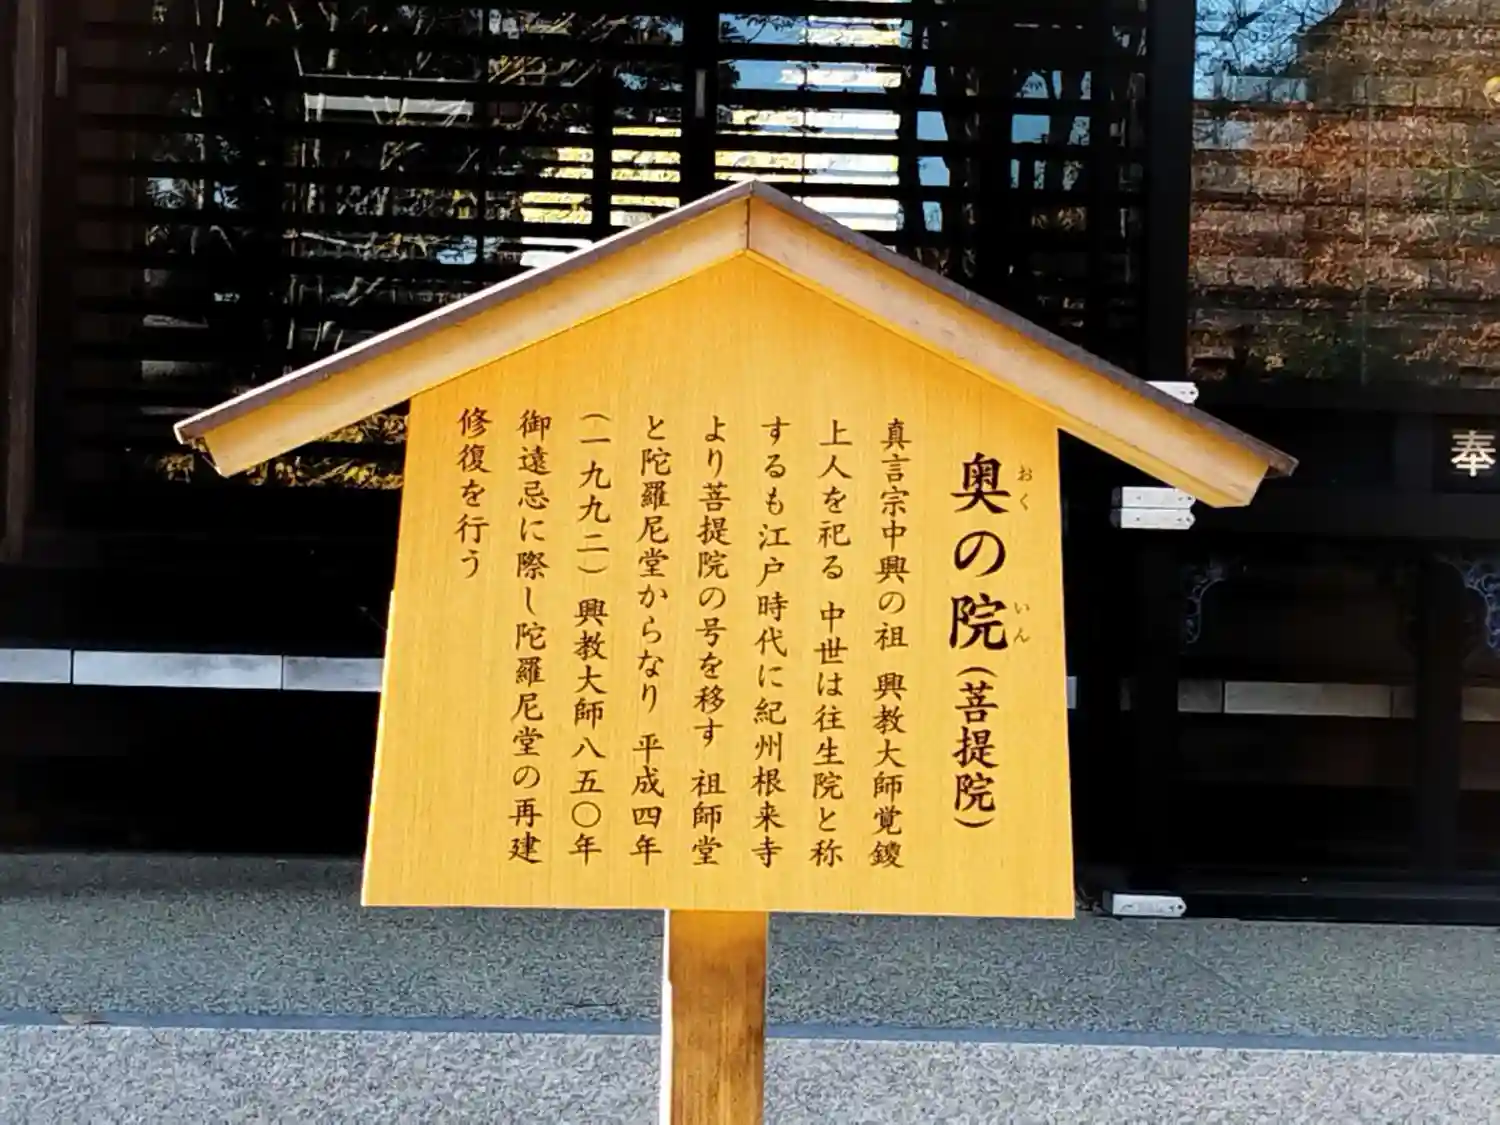 奥の院(菩提院)
おく
いん
真言宗中興の祖 興教大師覚鑁
上人を祀る 中世は往生院と称
するも江戸時代に紀州根来寺
より菩提院の号を移す 祖師堂
と陀羅尼堂からなり 平成四年
(一九九二)興教大師八五〇年
御遠忌に際し陀羅尼堂の再建
修復を行う
奉